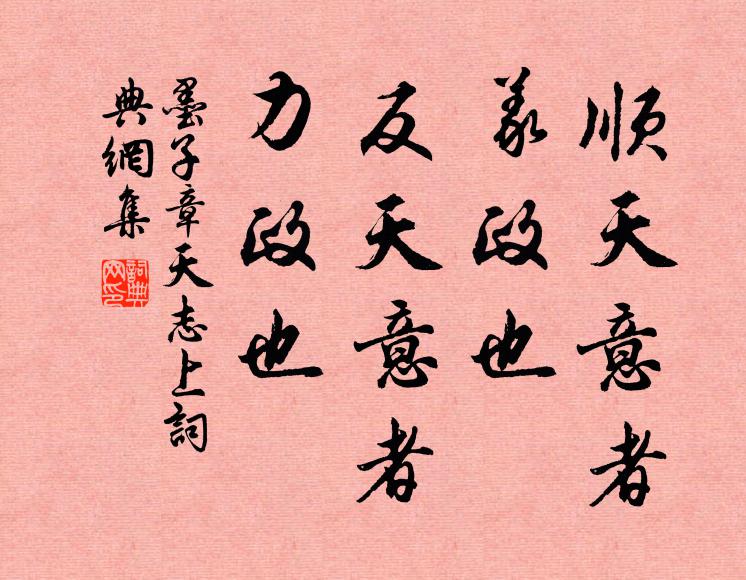 順天意者
義政也
反天意者
力政也
墨子章天志上詞
典網集
詞典
网印